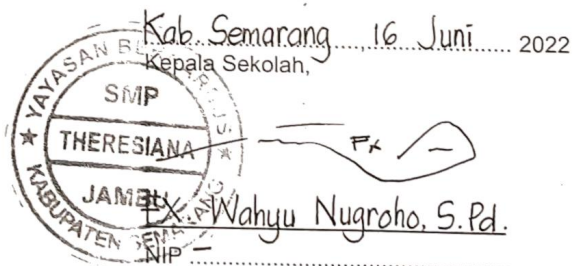 Kab. Semarang, 16 Juni 2022
Kepala Sekolah,
YAYASAN
SMP
THERESIANA
JAMBU
KABUPATEN SEMARANG
FX
FX. Wahyu Nugroho, S.Pd.
NIP -